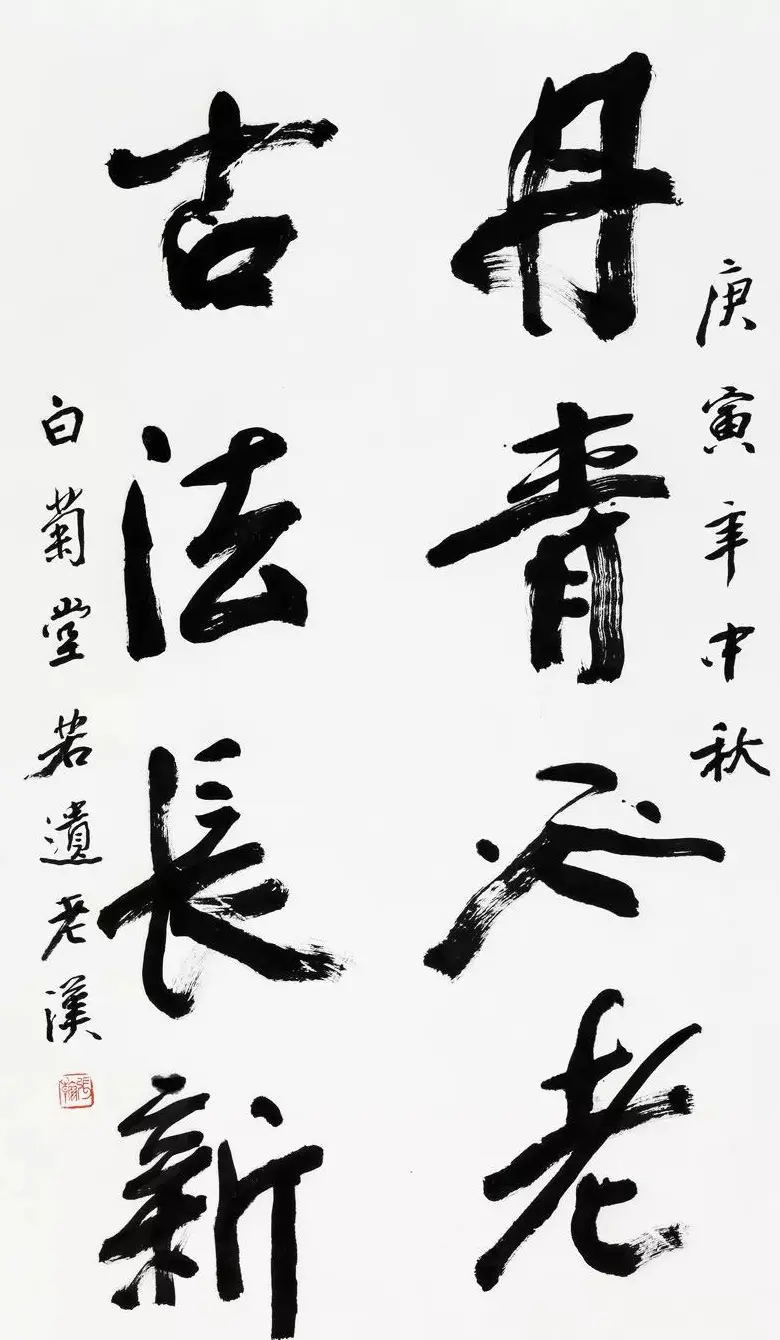 庚寅年中秋
丹青老
古法長新
白菊堂若遺老漢
張翰